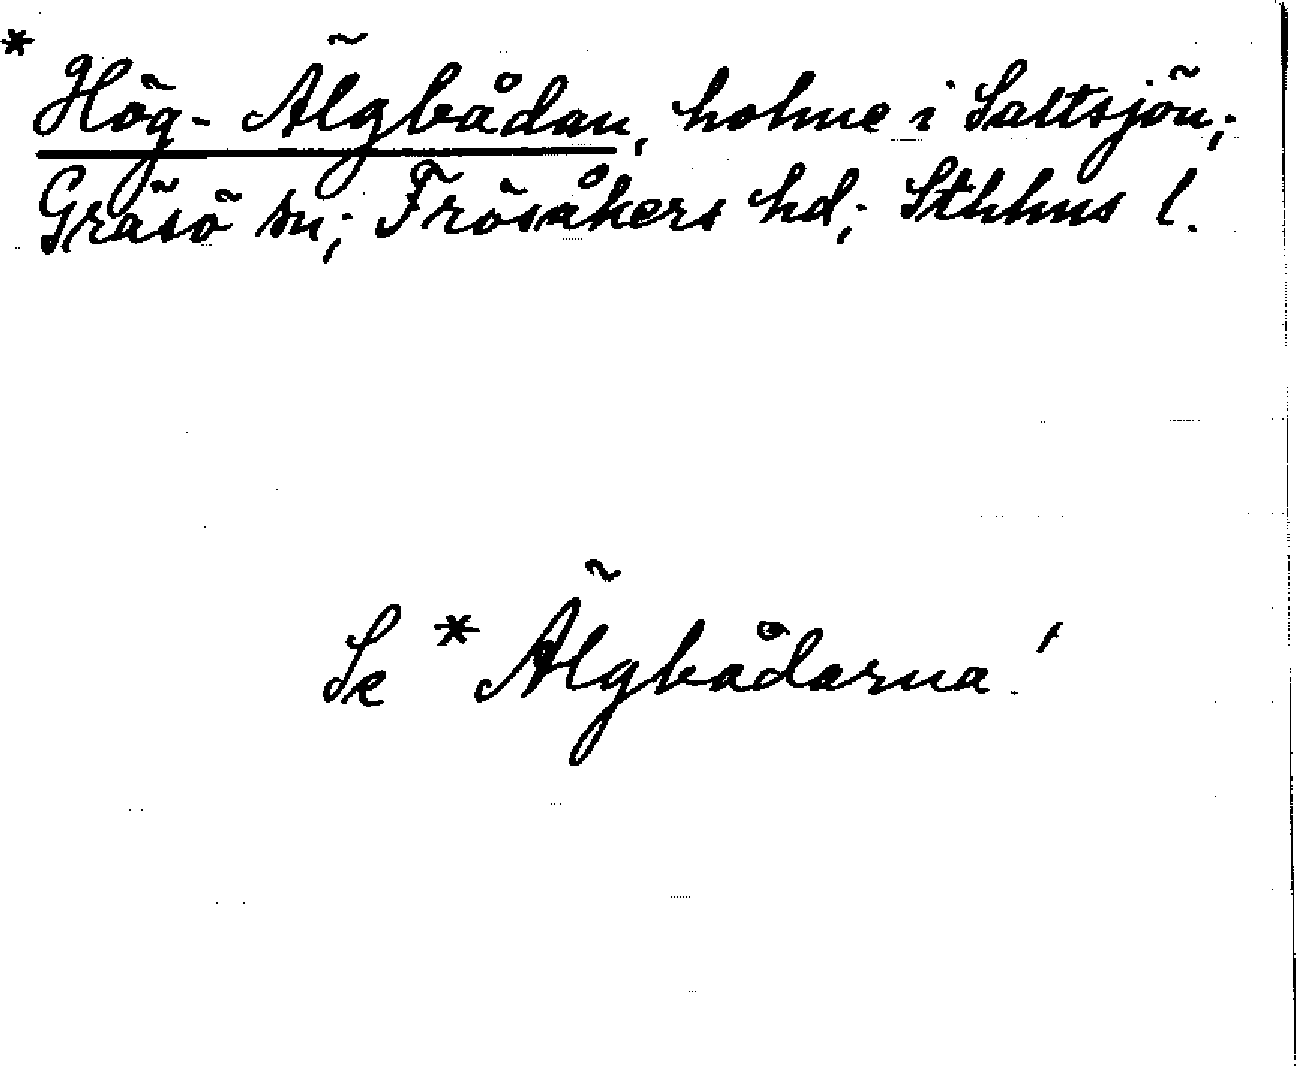 * Hög-Älgbådan, holme i Saltsjön;
Gräsö sn; Frösåkers hd; Sthlms l.
Se * Älgbådarna!